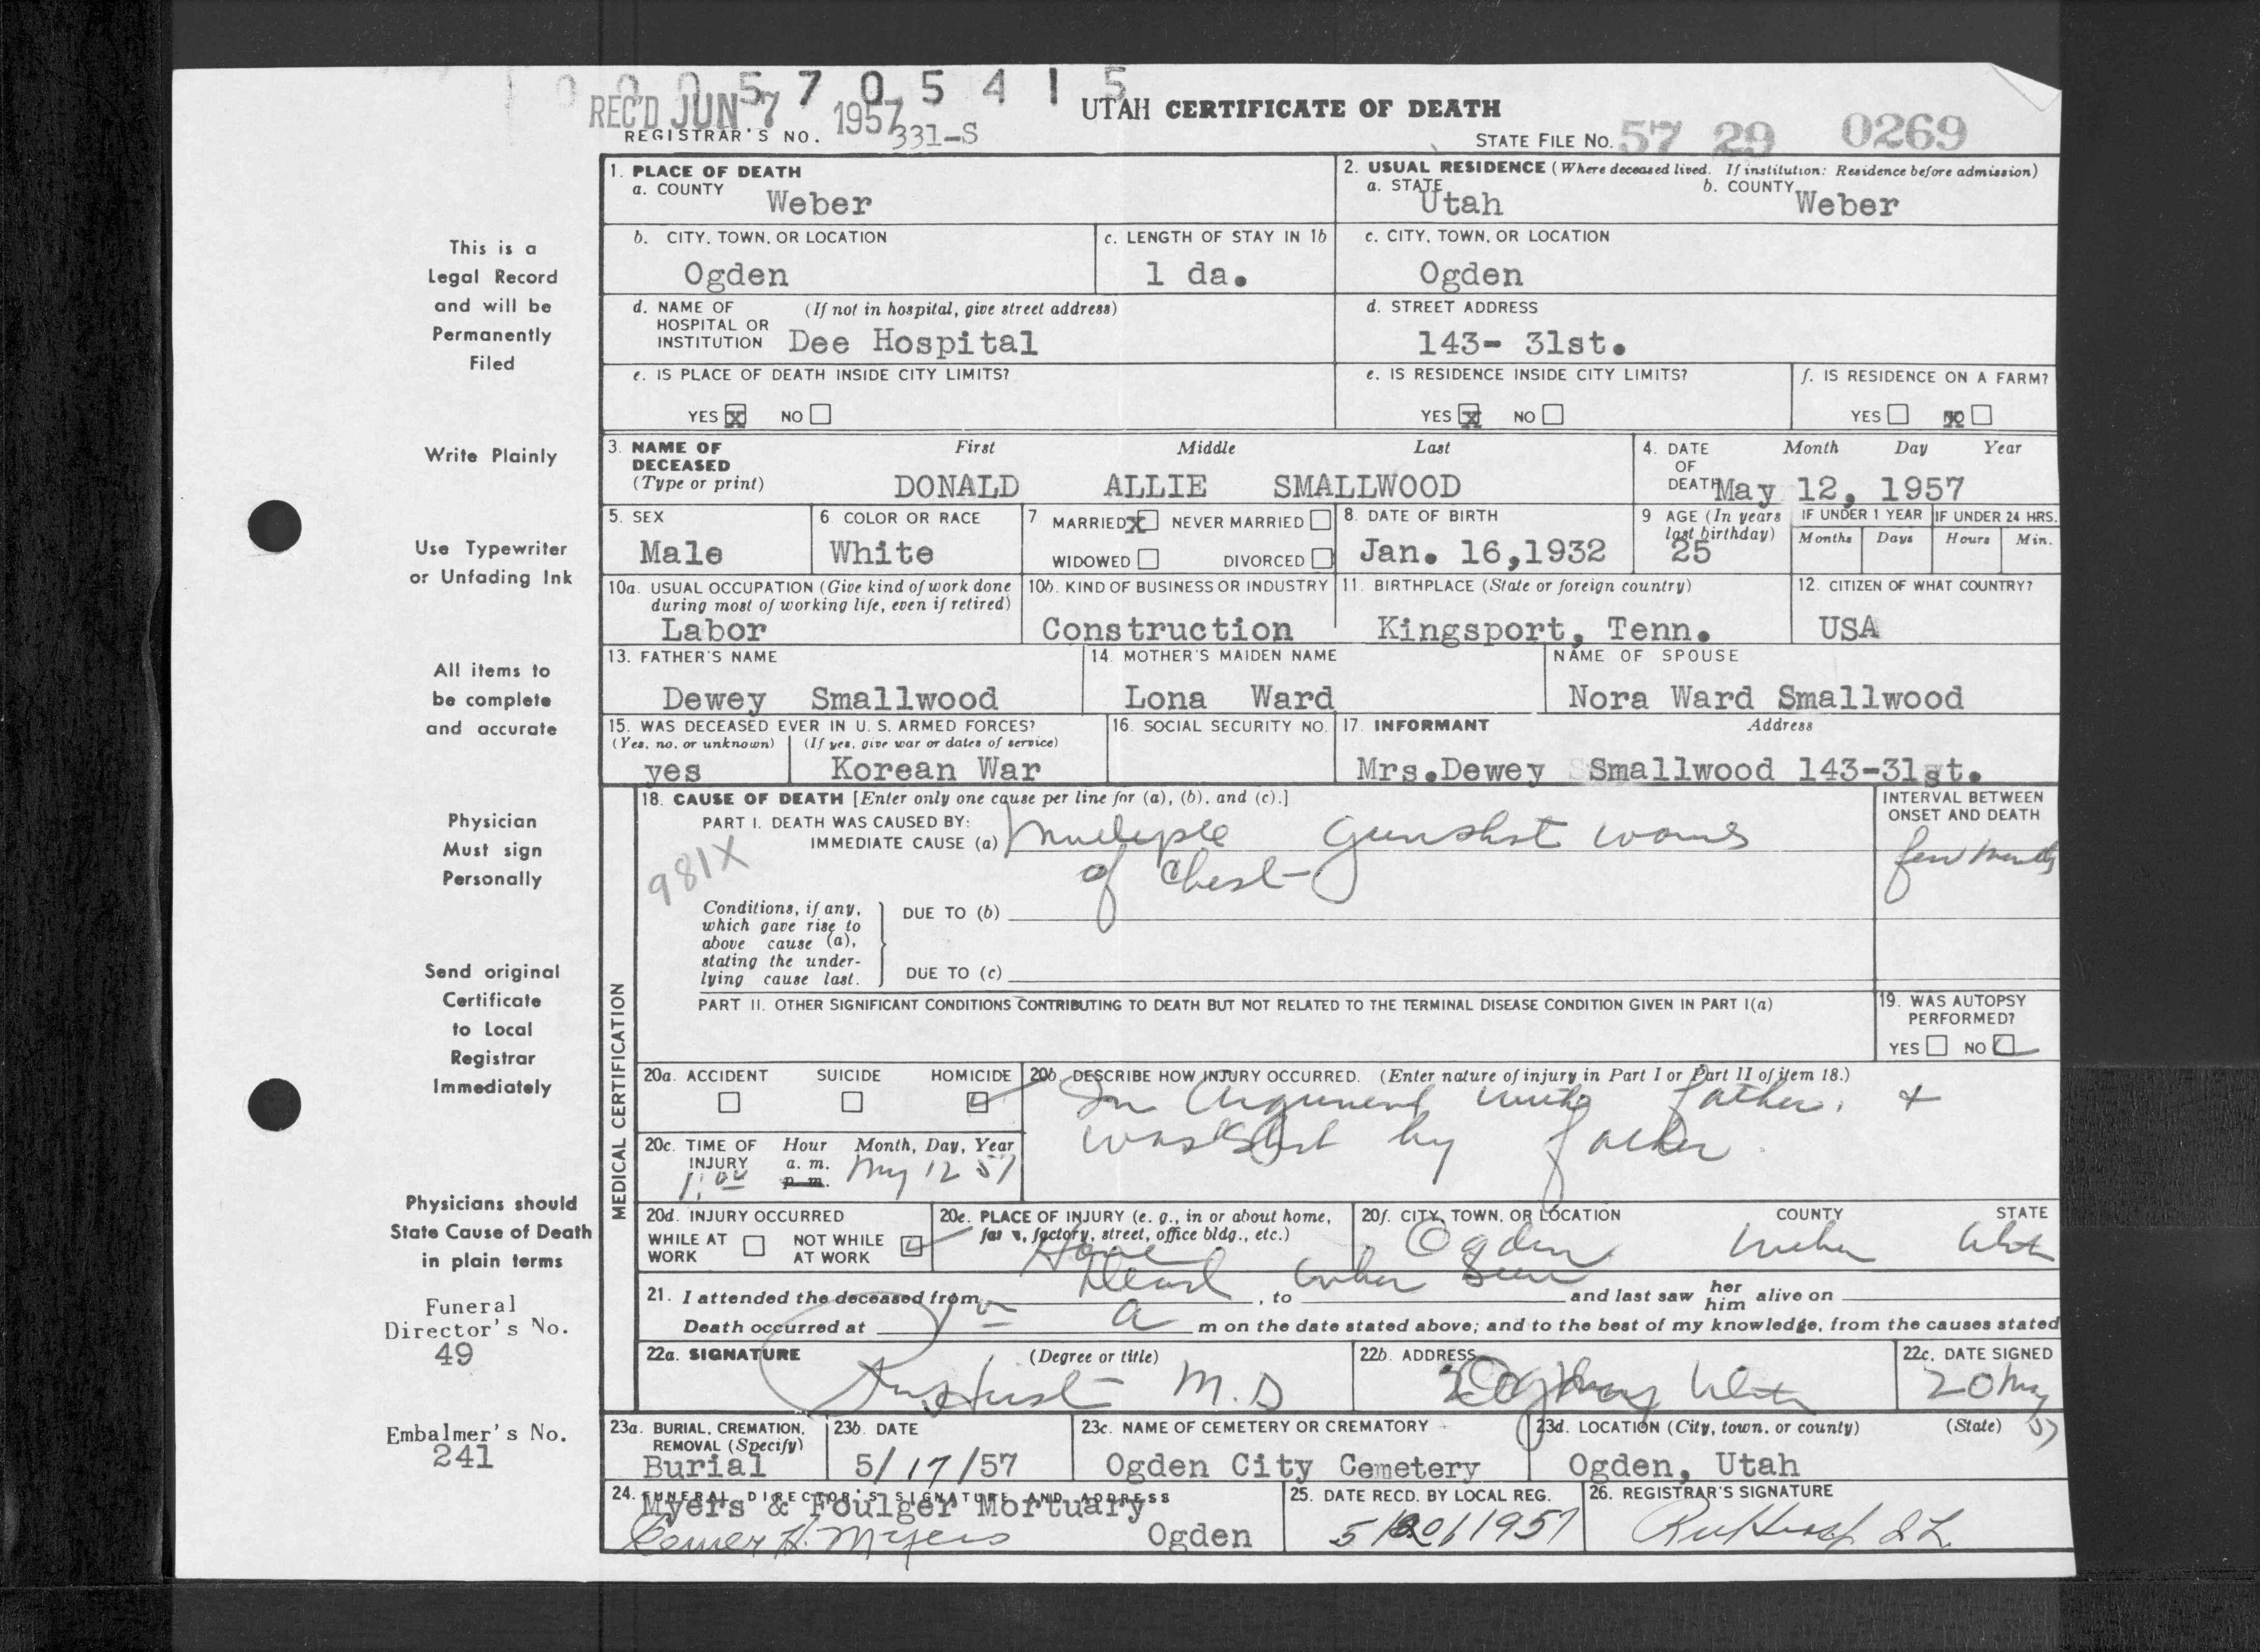 1 0 0 0 5 7 0 5 4 1 5
REC'D JUN 7 1957
REGISTRAR'S NO. 331-S
UTAH CERTIFICATE OF DEATH
STATE FILE NO. 57 29 0269
This is a
Legal Record
and will be
Permanently
Filed
Write Plainly
Use Typewriter
or Unfading Ink
All items to
be complete
and accurate
Physician
Must sign
Personally
Send original
Certificate
to Local
Registrar
Immediately
Physicians should
State Cause of Death
in plain terms
Funeral
Director's No.
49
Embalmer's No.
241
1. PLACE OF DEATH
a. COUNTY Weber
2. USUAL RESIDENCE (Where deceased lived. If institution: Residence before admission)
a. STATE Utah b. COUNTY Weber
b. CITY, TOWN, OR LOCATION
Ogden
c. LENGTH OF STAY IN 1b
1 da.
c. CITY, TOWN, OR LOCATION
Ogden
d. NAME OF (If not in hospital, give street address)
HOSPITAL OR
INSTITUTION Dee Hospital
d. STREET ADDRESS
143- 31st.
e. IS PLACE OF DEATH INSIDE CITY LIMITS?
YES X NO
e. IS RESIDENCE INSIDE CITY LIMITS?
YES X NO
f. IS RESIDENCE ON A FARM?
YES NO
3. NAME OF DECEASED (Type or print)
First Middle Last
DONALD ALLIE SMALLWOOD
4. DATE OF DEATH Month Day Year
May 12, 1957
5. SEX
Male
6 COLOR OR RACE
White
7 MARRIED X NEVER MARRIED
WIDOWED DIVORCED
8. DATE OF BIRTH
Jan. 16,1932
9 AGE (In years last birthday)
25
IF UNDER 1 YEAR IF UNDER 24 HRS.
Months Days Hours Min.
10a. USUAL OCCUPATION (Give kind of work done
during most of working life, even if retired)
Labor
10b. KIND OF BUSINESS OR INDUSTRY
Construction
11. BIRTHPLACE (State or foreign country)
Kingsport, Tenn.
12. CITIZEN OF WHAT COUNTRY?
USA
13. FATHER'S NAME
Dewey Smallwood
14. MOTHER'S MAIDEN NAME
Lona Ward
NAME OF SPOUSE
Nora Ward Smallwood
15. WAS DECEASED EVER IN U. S. ARMED FORCES?
(Yes, no, or unknown) (If yes, give war or dates of service)
yes Korean War
16. SOCIAL SECURITY NO.
17. INFORMANT Address
Mrs.Dewey Smallwood 143-31st.
MEDICAL CERTIFICATION
18. CAUSE OF DEATH [Enter only one cause per line for (a), (b), and (c).]
PART I. DEATH WAS CAUSED BY:
IMMEDIATE CAUSE (a) Multiple gunshot wounds
of Chest
981X
INTERVAL BETWEEN
ONSET AND DEATH
few
Conditions, if any,
which gave rise to
above cause (a),
stating the under-
lying cause last.
DUE TO (b)
DUE TO (c)
PART II. OTHER SIGNIFICANT CONDITIONS CONTRIBUTING TO DEATH BUT NOT RELATED TO THE TERMINAL DISEASE CONDITION GIVEN IN PART I(a)
19. WAS AUTOPSY
PERFORMED?
YES NO
20a. ACCIDENT SUICIDE HOMICIDE
20b. DESCRIBE HOW INJURY OCCURRED. (Enter nature of injury in Part I or Part II of item 18.)
In Argument with father. +
was shot by father
20c. TIME OF INJURY Hour Month, Day, Year
1:00 a. m. p. m. May 12 57
20d. INJURY OCCURRED
WHILE AT WORK NOT WHILE AT WORK
20e. PLACE OF INJURY (e. g., in or about home,
farm, factory, street, office bldg., etc.)
Home
20f. CITY, TOWN, OR LOCATION COUNTY STATE
Ogden Weber Utah
Dead when seen
21. I attended the deceased from , to and last saw her him alive on
Death occurred at 1 a m on the date stated above; and to the best of my knowledge, from the causes stated
22a. SIGNATURE (Degree or title)
M.D
22b. ADDRESS
Ogden Utah
22c. DATE SIGNED
20 May 57
23a. BURIAL, CREMATION,
REMOVAL (Specify)
Burial
23b. DATE
5/17/57
23c. NAME OF CEMETERY OR CREMATORY
Ogden City Cemetery
23d. LOCATION (City, town, or county) (State)
Ogden, Utah
24. FUNERAL DIRECTOR'S SIGNATURE AND ADDRESS
Myers & Foulger Mortuary
H. Myers Ogden
25. DATE RECD. BY LOCAL REG.
5/20/1957
26. REGISTRAR'S SIGNATURE